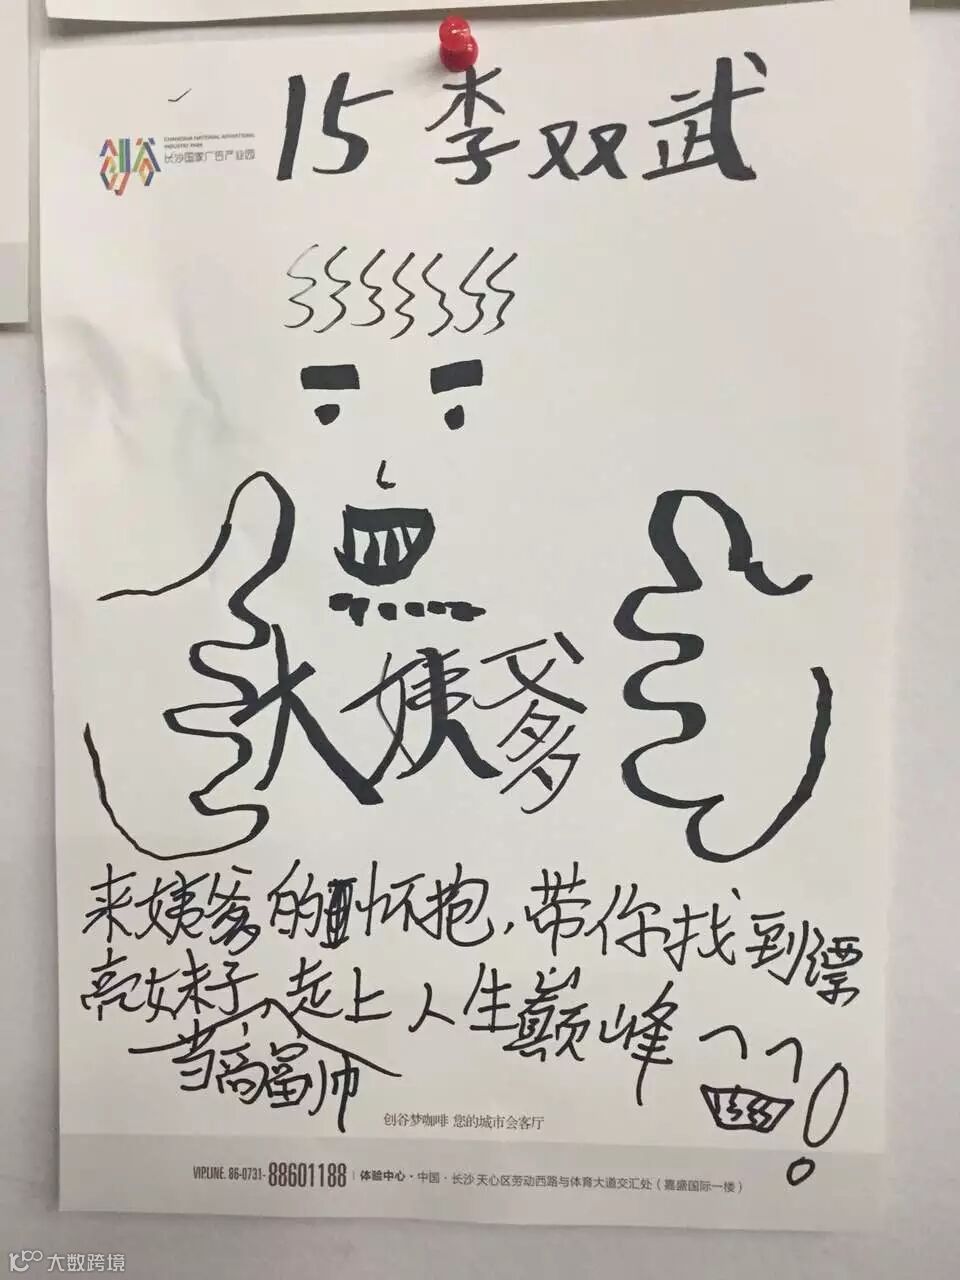 15 李双武
CHANGSHA NATIONAL ADVERTISING
INDUSTRY PARK
长沙国家广告产业园
大姨爹
来姨爹的怀抱,带你找到漂
亮妹子,走上人生巅峰
当高富帅
!
创谷梦咖啡 您的城市会客厅
VIPLINE. 86-0731-88601188 | 体验中心·中国·长沙 天心区劳动西路与体育大道交汇处(嘉盛国际一楼)
大数跨境